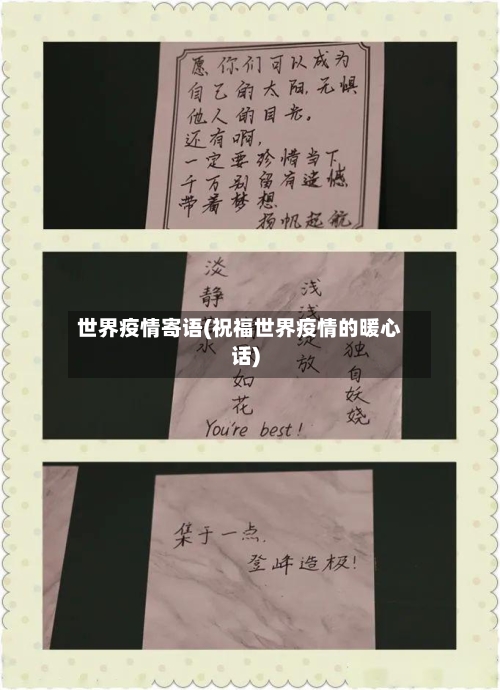 愿你们可以成为
自己的太阳,无惧
他人的目光。
还有啊,
一定要珍惜当下,
千万别留有遗憾
带着梦想
扬帆起航
世界疫情寄语(祝福世界疫情的暖心
话)
淡静
水
如花
浅浅绽放
独自妖娆
You're best!
集于一点,
登峰造极!